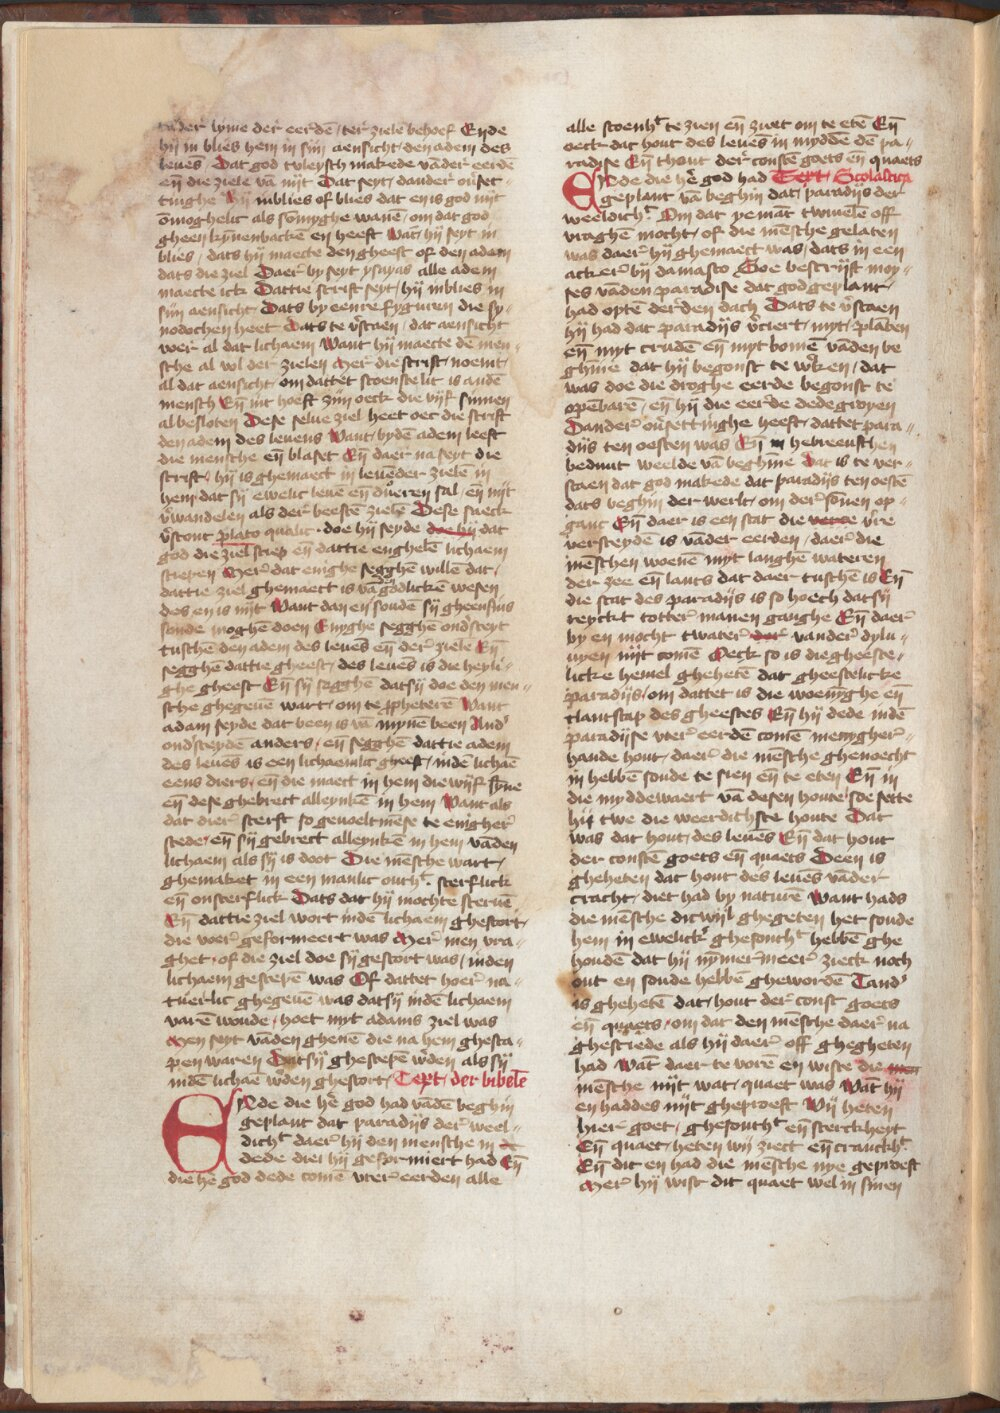 vader lyme der eerdē / ter ziele behoef Ende
hij in blies hem in sijn aensicht / den adem des
leuēs Dat god tvleysch makede vāder eerdē
eñ die ziele vā nijt Dat seyt / dander ou͛set-
tinghe Hij inblies of blies dat en is god nijt
ōmoghelic als sōmyghe wanē / om dat god
gheen kynenbackē en heeft Wāt / hij seyt in
blies / dats hij maecte den gheest of den adam
dats die ziel Daer͛ by seyt ysayas alle adem
maecte ick Dattie scrift seyt / hij inblies in
sijn aensicht / Dats by eenre fyguren die sy-
nodochen heet Dats te v͛staen / dat aensicht
voer al dat lichaem Want hij maecte dē men-
sche al vol der zielen Mer die scrift / noemt /
al dat aensicht / om dattet scoenste lit is andē
mensch Eñ int hoeft zijn oeck die vijf sinnen
al besloten Dese selue ziel heet oec die scrift
den adem des leuens Want / bydē adem leeft
die mensche eñ blaset Eñ daer na seyt die
scrift / hij is ghemaect in leuēder zielē in
hem dat sij ewelic leuē eñ dueren sal / eñ nijt
v͛wandelen als der beestē zielē Dese saeck
v͛stont plato qualic · doe hij seyde doe hij dat
god die ziel sciep eñ dattie enghelē lichaem
sciepen Mer͛ dat enighe segghē willē dat /
dattie ziel ghemaect is vā godlickē wesen
des en is nijt Want dan en soudē sij gheensins
sonde moghē doen Enyghe segghē ondsceyt
tusschē den adem des leuēs eñ der͛ ziele Eñ
segghē dattie gheest / des leuēs is die heyli-
ghe gheest Eñ sij segghē datsij doe den men-
sche ghegeuē wart / om te ppheterē Want
adam seyde dat been is vā mynē been And͛
ondsceydē anders / eñ segghē dattie adem
des leuēs is een lichaemlic gheest / indē lichaē
eens diers / eñ die maect in hem die vijf sinne
eñ dese ghebrect alleynkē in hem Want als
dat dier͛ sterft so geuoeltmēse te enigher͛
stede / eñ sij gebrect alleynkē in hem vāden
lichaem als sij is doot Die mēsche wart /
ghemaket in een manlic outh͛t sterflick
eñ onsterflick Dats dat hij mochte steruē
Eñ dattie ziel wort indē lichaem ghestort /
die voer͛ geformeert was Mer͛ men vra-
ghet / of die ziel doe sij gestort was / inden
lichaem gescepē was Of dattet hoer͛ na-
tuerlic ghegeuē was datsij indē lichaem
varē woude / hoet myt adams ziel was
Men seyt vāden ghenē die na hem ghesca-
pen waren Datsij ghescepē w͛den als sij
indē lichaē w͛den ghestort / Text / der bibelē
Eynde die he͛ god had vādē beghin
geplant dat paradijs der͛ weel-
dich͛t daer͛ hij den mensche in
dede dien hij geformiert had Eñ
die he͛ god dede comē vter͛ eerden alle
alle scoenh͛t te zien eñ zuet om te etē Eñ
oeck dat hout des leuēs in myddē dē pa-
radise Eñ thout der͛ constē goets eñ quaets
Eynde die he͛ god had Text / Scolastica
geplant vā beghin dat / paradijs der
weeldich͛t Om dat yemāt twiuelē off
vraghē mocht / of die mēsche gelaten
was daer͛ hij ghemaect was / dats in een
acker͛ bij damasco Soe bescrijft moy-
ses vāden paradise dat god geplant /
had optē der͛den dach Dats te v͛staen
hij had dat paradijs v͛ciert / myt / plāten
eñ myt crudē eñ myt bomē vāden be
ghīne dat hij begonst te w͛ken / dat
was doe die droghe eerde begonst te
opēbarē / eñ hij die eer͛de dede groyen
Dander͛ ou͛settinghe heeft / dattet para-
dijs ten oesten was Eñ in hebreeusschen
beduut weelde vā beghīne Dat is te ver-
staen dat god makede dat paradijs ten oestē
dats beghin der werlt / om der͛ sōnen op-
ganc Eñ daer is een stat die verre v͛re
versceydē is vāder eerden / daer͛ die
mēschen wonē myt langhē wateren
der zee eñ lants dat daer tusschē is Eñ
die stat des paradijs is so hoech datsij
reyckt totter͛ manen ganghe Eñ daer͛
by en mocht twater͛ der͛ vander͛ dylu-
uyen nijt comē Oeck so is die gheeste-
licke hemel ghehetē dat gheestelicke
paradijs / om dattet is die woenīghe eñ
tlantscap des gheestes Eñ hij dede indē
paradijse vter͛ eerdē comē menygher͛-
hande hout / daer͛ die mēsche ghenoecht
in hebbē soude te sien eñ te eten Eñ in
die myddewaert vā desen houte / soe sette
hij twe die weerdichste houte Dat
was dat hout / des leuēs Eñ dat hout
der constē goets eñ quaets Deen is
gheheten dat hout des leuēs vāder
cracht / diet had by naturē Want hads
die mēsche dicwijl ghegeten het soude
hem in ewelick͛ ghesonth͛t hebbē ghe
houdē dat hij nymmermeer͛ zieck noch
out en soude hebbē ghewordē Tand͛
is ghehetē dat / hout der͛ const goets
eñ quaets / om dat den mēsche daer͛ na
ghesciede als hij daer͛ off ghegheten
had Wāt daer te vorē en wiste die men
mēsche nijt wat / quaet was Wāt hij
en haddes nijt gheproeft Wij heten
hier goet / ghesonth͛t eñ sterckheyt
Eñ quaet / heten wij ziect eñ cranckh͛t
Eñ dit en had die mēsche nye geproeft
Mer͛ hij wist dit quaet wel in sinen